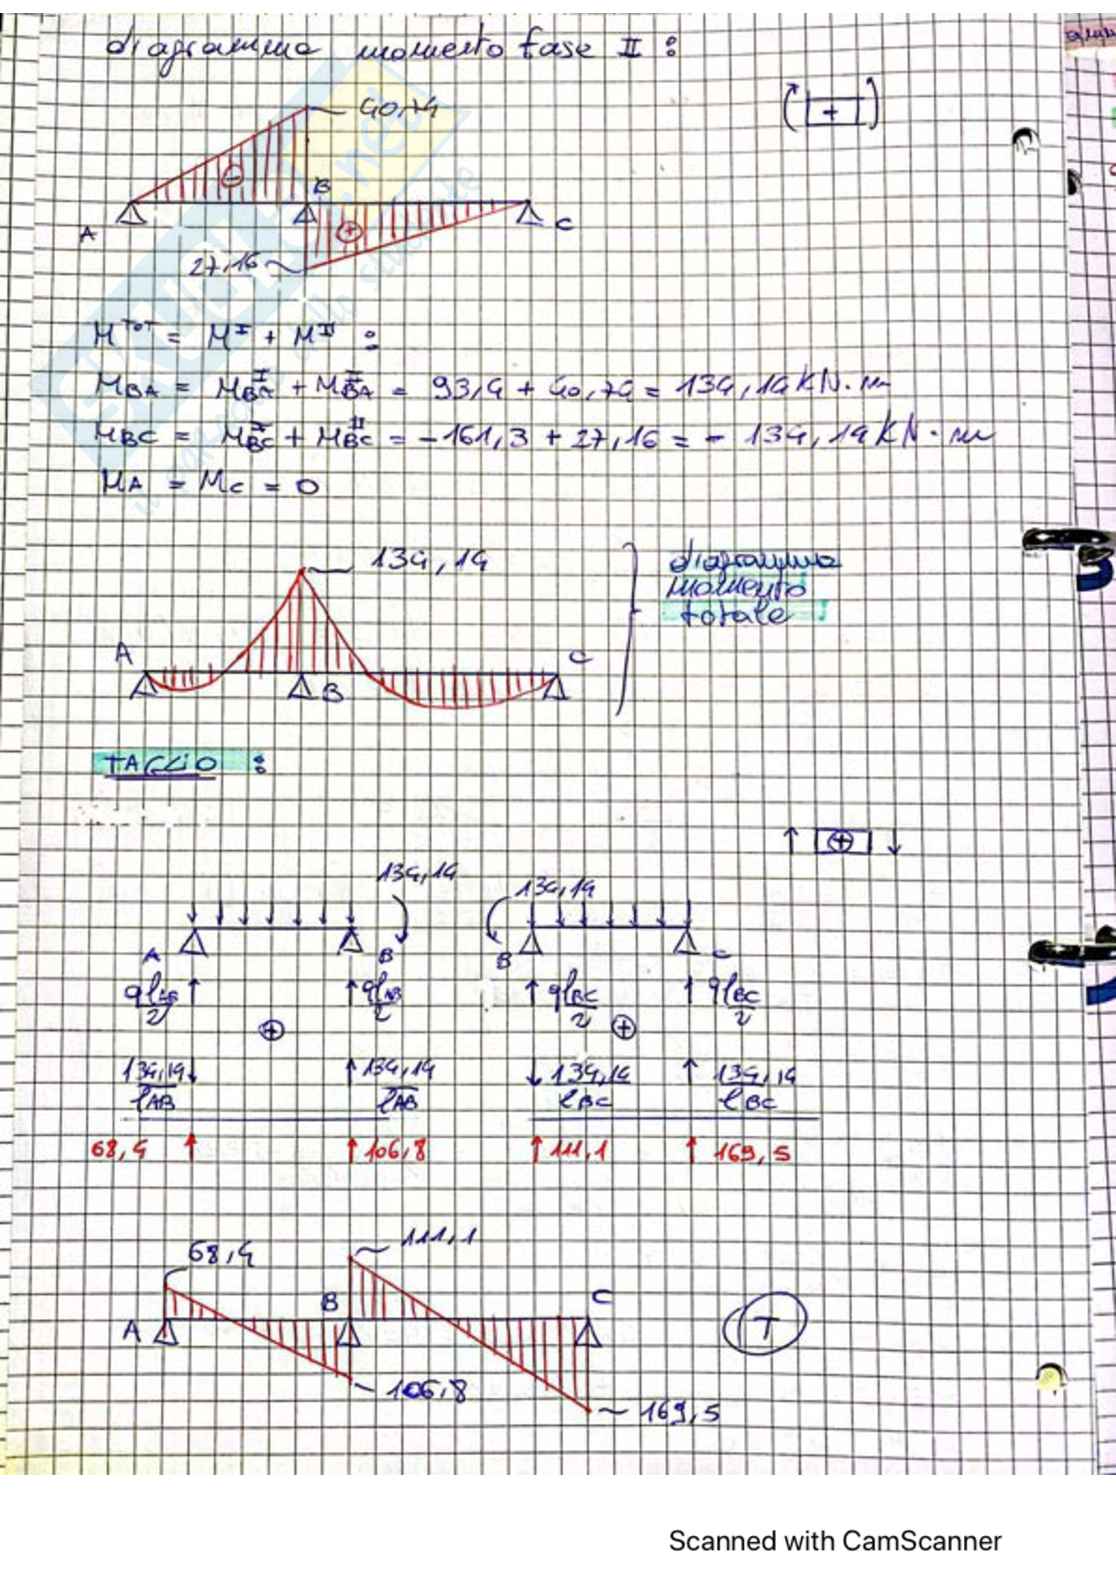 diagramma momento fase II :
40,74
(+)
⊖
B
A
⊕
C
27,16
M^TOT = M^I + M^II :
M_BA = M_BA^I + M_BA^II = 93,4 + 40,74 = 134,14 KN·m
M_BC = M_BC^I + M_BC^II = -161,3 + 27,16 = - 134,14 KN·m
M_A = M_C = 0
134,14
diagramma
momento
totale
A
C
B
TAGLIO :
↑ ⊕ ↓
134,14
134,14
A
B
B
C
qℓ_AB/2 ↑
↑ qℓ_AB/2
↑ qℓ_BC/2
↑ qℓ_BC/2
⊕
⊕
134,14/ℓ_AB ↓
↑ 134,14/ℓ_AB
↓ 134,14/ℓ_BC
↑ 134,14/ℓ_BC
68,4 ↑
↑ 106,8
↑ 111,1
↑ 169,5
68,4
111,1
B
C
A
T
106,8
169,5
Scanned with CamScanner